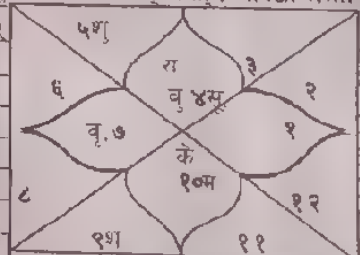 ५शु
रा
३
६
वु ४सू
२
वृ.७
१
के
१०म
८
१२
९श
११